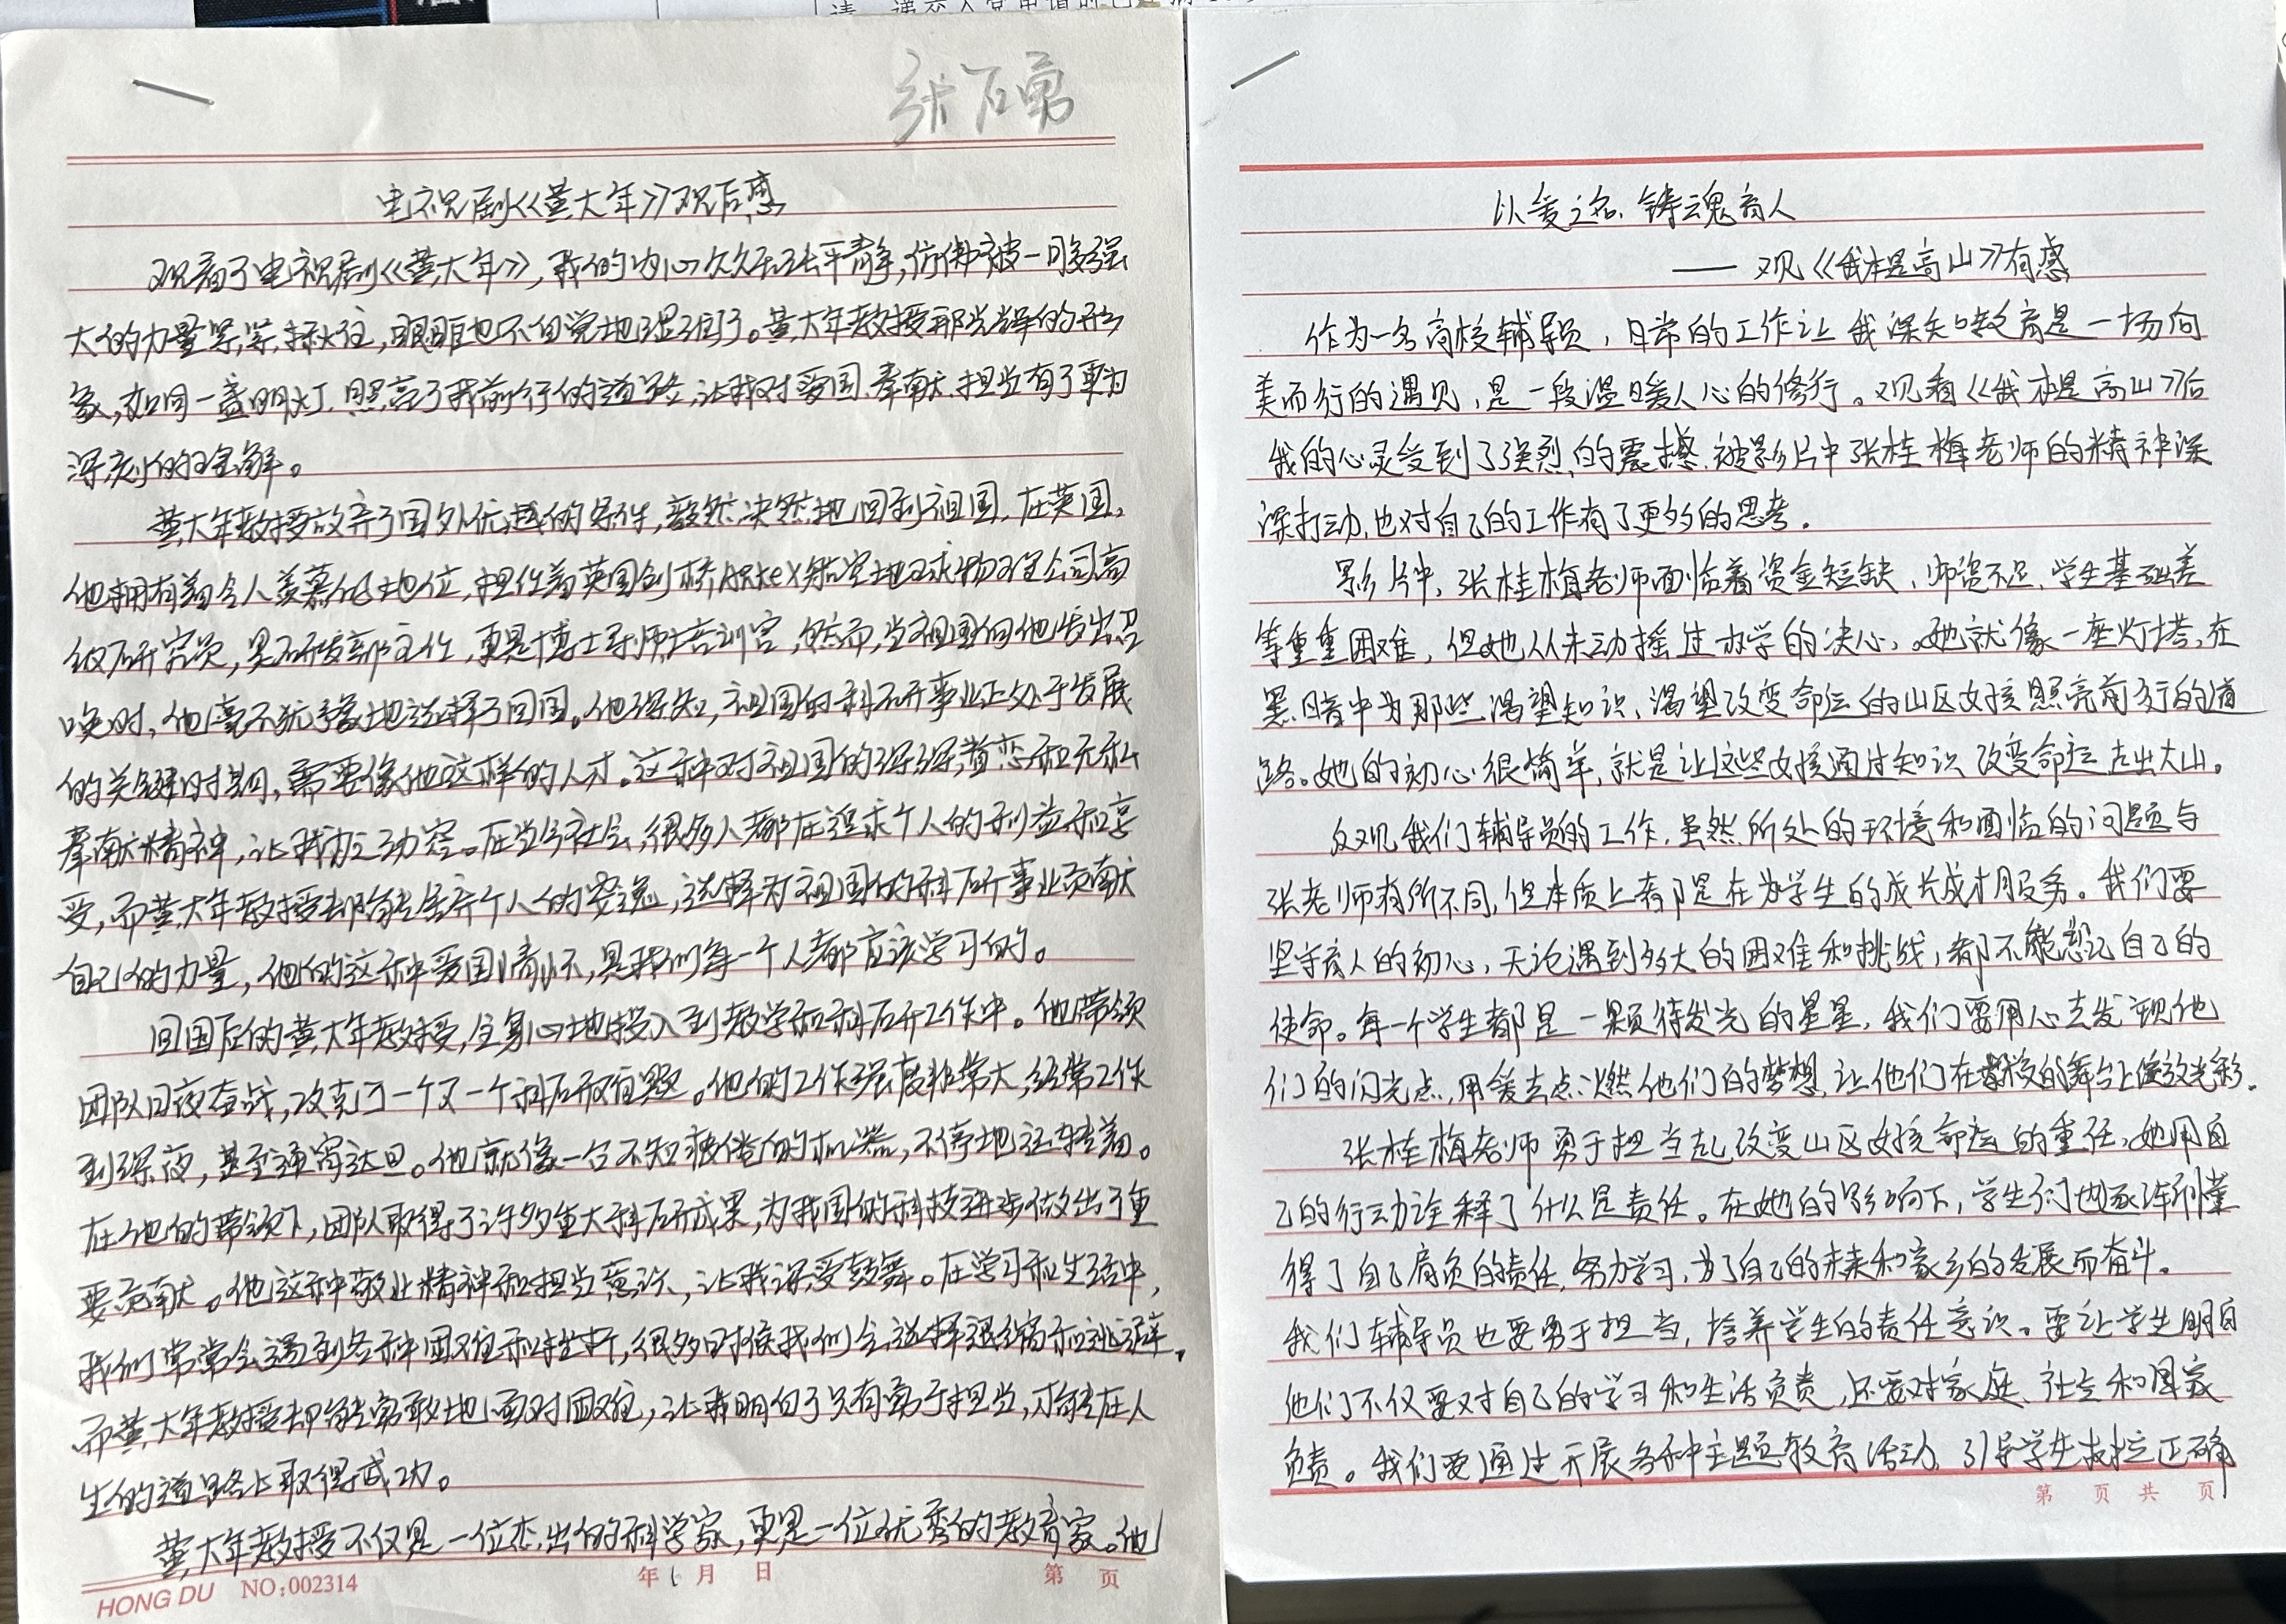 张石勇
电视剧《黄大年》观后感
观看了电视剧《黄大年》,我的内心久久无法平静,仿佛被一股强
大的力量紧紧揪住,眼眶也不自觉地湿润了。黄大年教授那光辉的形
象,如同一盏明灯,照亮了我前行的道路,让我对爱国、奉献、担当有了更为
深刻的理解。
黄大年教授放弃了国外优越的条件,毅然决然地回到祖国。在英国,
他拥有着令人羡慕的地位,担任着英国剑桥ARKeX航空地球物理公司高
级研究员,是研发部主任,更是博士导师培训官,然而,当祖国向他发出召
唤时,他毫不犹豫地选择了回国。他深知,祖国的科研事业正处于发展
的关键时期,需要像他这样的人才。这种对祖国的深深眷恋和无私
奉献精神,让我为之动容。在当今社会,很多人都在追求个人的利益和享
受,而黄大年教授却能舍弃个人的安逸,选择为祖国的科研事业贡献
自己的力量,他的这种爱国情怀,是我们每一个人都应该学习的。
回国后的黄大年教授,全身心地投入到教学和科研工作中。他带领
团队日夜奋战,攻克了一个又一个科研难题。他的工作强度非常大,经常工作
到深夜,甚至通宵达旦。他就像一台不知疲倦的机器,不停地运转着。
在他的带领下,团队取得了许多重大科研成果,为我国的科技进步做出了重
要贡献。他这种敬业精神和担当意识,让我深受鼓舞。在学习和生活中,
我们常常会遇到各种困难和挫折,很多时候我们会选择退缩和逃避。
而黄大年教授却能勇敢地面对困难,让我明白了只有勇于担当,才能在人
生的道路上取得成功。
黄大年教授不仅是一位杰出的科学家,更是一位优秀的教育家。他
HONG DU NO:002314 年 月 日 第 页
以爱之名 铸魂育人
——观《我本是高山》有感
作为一名高校辅导员,日常的工作让我深知教育是一场向
美而行的遇见,是一段温暖人心的修行。观看《我本是高山》后
我的心灵受到了强烈的震撼,被影片中张桂梅老师的精神深
深打动,也对自己的工作有了更多的思考。
影片中,张桂梅老师面临着资金短缺、师资不足、学生基础差
等重重困难,但她从未动摇过办学的决心,她就像一座灯塔,在
黑暗中为那些渴望知识、渴望改变命运的山区女孩照亮前行的道
路。她的初心很简单,就是让这些女孩通过知识改变命运,走出大山。
反观我们辅导员的工作,虽然所处的环境和面临的问题与
张老师有所不同,但本质上都是在为学生的成长成才服务。我们要
坚守育人的初心,无论遇到多大的困难和挑战,都不能忘记自己的
使命。每一个学生都是一颗待发光的星星,我们要用心去发现他
们的闪光点,用爱去点燃他们的梦想,让他们在学校的舞台上绽放光彩。
张桂梅老师勇于担当起改变山区女孩命运的重任,她用自
己的行动诠释了什么是责任。在她的影响下,学生们也逐渐懂
得了自己肩负的责任,努力学习,为了自己的未来和家乡的发展而奋斗。
我们辅导员也要勇于担当,培养学生的责任意识。要让学生明白
他们不仅要对自己的学习和生活负责,还要对家庭、社会和国家
负责。我们要通过开展各种主题教育活动,引导学生树立正确
第 页 共 页